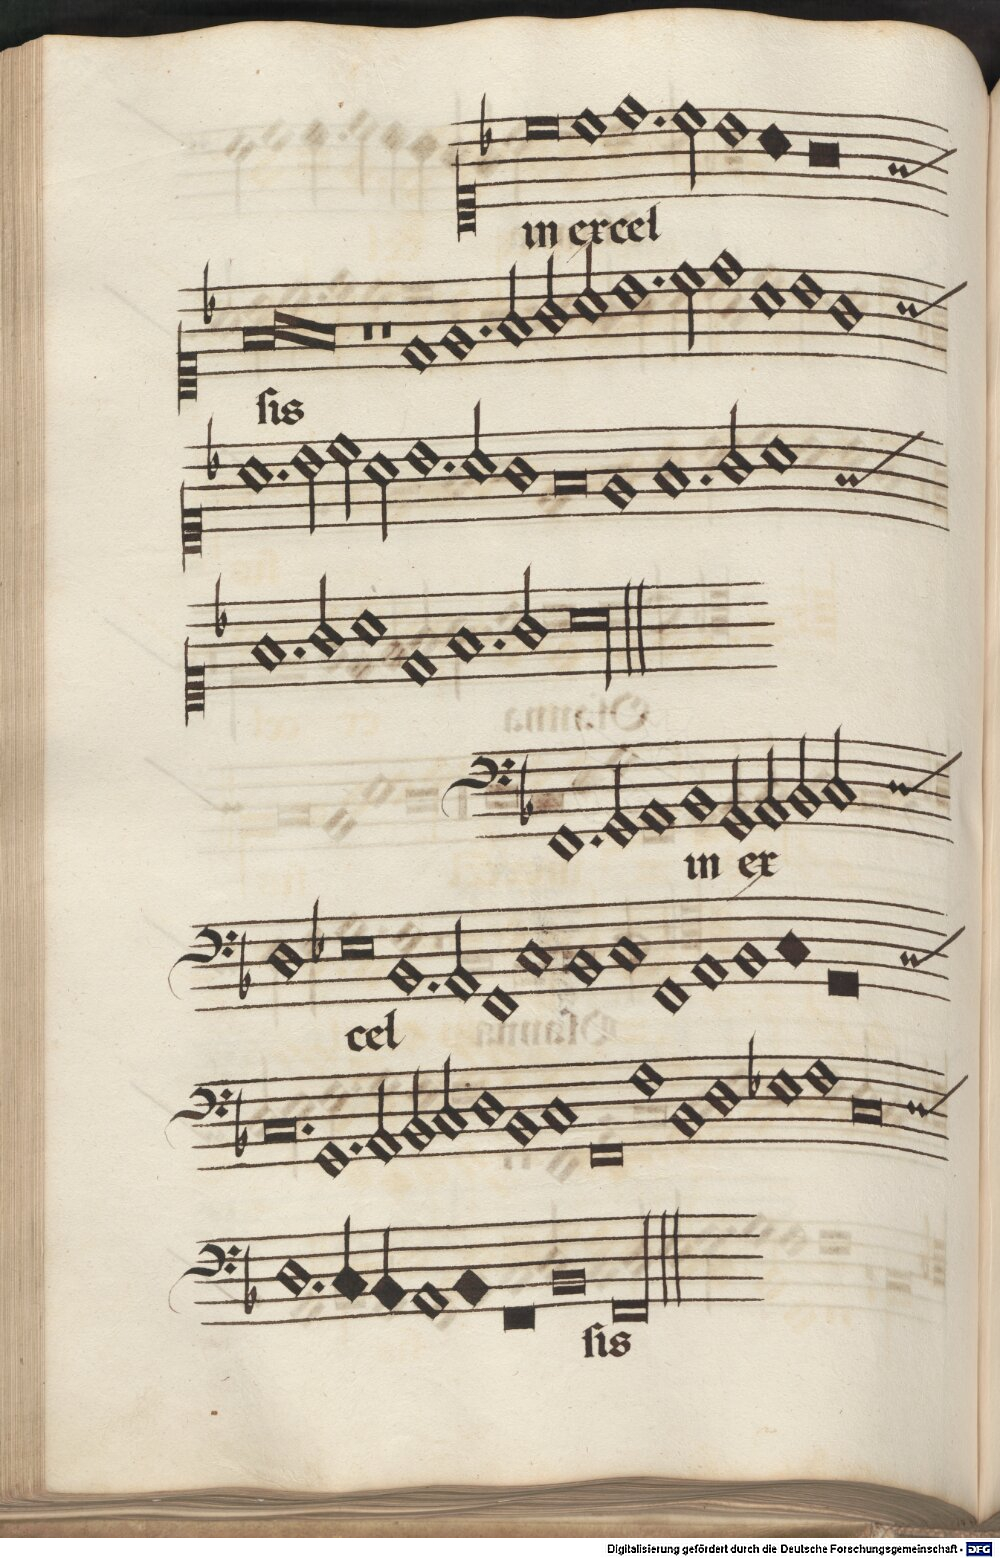 in excel
sis
in ex
cel
sis
Digitalisierung gefördert durch die Deutsche Forschungsgemeinschaft - DFG